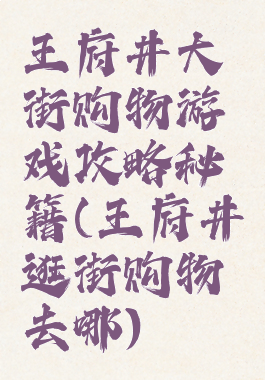 王府井大
街购物游
戏攻略秘
籍(王府井
逛街购物
去哪)